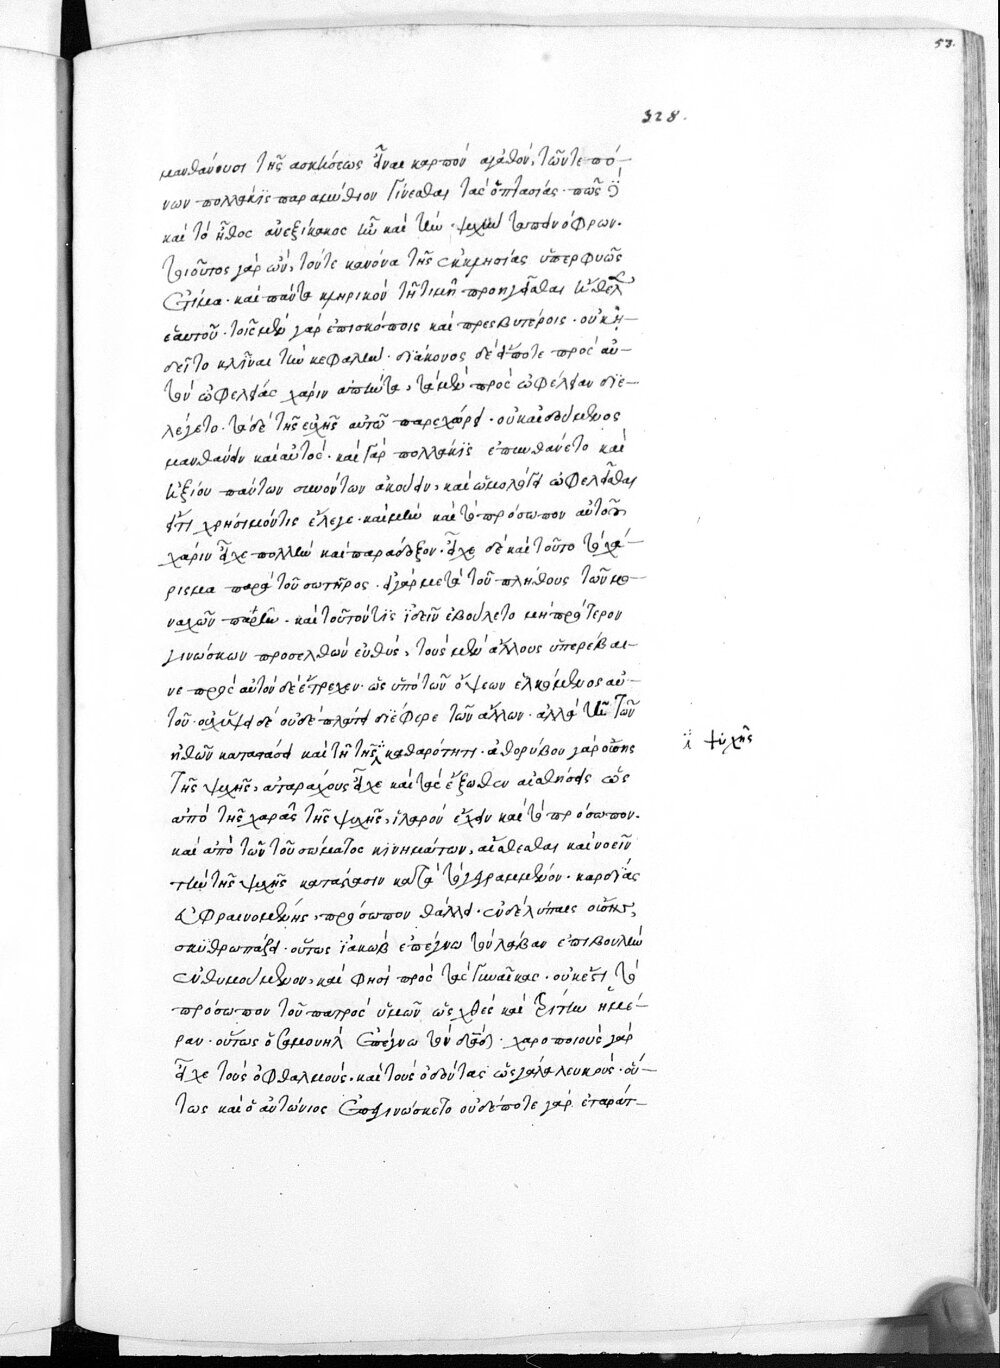 53.
328.
μανθάνουσι τῆς ἀσκήσεως εἶναι καρπὸν ἀγαθὸν, τῶν τε πό-
νων πολλάκϊς παραμύθιον γίνεσθαι τὰς ὀπτασίας. πῶς ϊ
καὶ τὸ ἦθος ἀνεξίκακος ἦν καὶ τὴν ψυχὴν ταπεινόφρων.
τοιοῦτος γὰρ ὢν, τόν τε κανόνα τῆς ἐκκλησίας ὑπερφυῶς
ἐτίμα. καὶ πάντα κληρικὸν τῇ τιμῇ προηγεῖσθαι ἤθελεν
ἑαυτοῦ. τοῖς μὲν γὰρ ἐπισκόποις καὶ πρεσβυτέροις. οὐκ ἠ-
δεῖτο κλῖναι τὴν κεφαλήν. διάκονος δὲ εἴποτε πρὸς αὐ-
τὸν ὠφελείας χάριν ἀπήντα, τὰ μὲν πρὸς ὠφέλειαν διε-
λέγετο. τὰ δὲ τῆς εὐχῆς αὐτῷ παρεχώρει. οὐκ αἰδούμενος
μανθάνειν καὶ αὐτός. καὶ γὰρ πολλάκϊς ἐπυνθάνετο καὶ
ἠξίου πάντων συνόντων ἀκούειν, καὶ ὡμολόγει ὠφελεῖσθαι
εἴ τι χρήσιμόν τις ἔλεγε. καὶ μὴν καὶ τὸ πρόσωπον αὐτοῦ,
χάριν εἶχε πολλὴν καὶ παράδοξον. εἶχε δὲ καὶ τοῦτο τὸ χά-
ρισμα παρὰ τοῦ σωτῆρος. εἰ γὰρ μετὰ τοῦ πλήθους τῶν μο-
ναχῶν παρῆν. καὶ τοῦτόν τϊς ἰδεῖν ἐβούλετο μὴ πρότερον
γινώσκων προσελθὼν εὐθὺς, τοὺς μὲν ἄλλους ὑπερέβαι-
νε πρὸς αὐτὸν δὲ ἔτρεχεν. ὡς ὑπὸ τῶν ὄψεων ἑλκόμενος αὐ-
τοῦ. οὐχ ὕψει δὲ οὐδὲ πλάτει διέφερε τῶν ἄλλων. ἀλλὰ τῇ τῶν
ἠθῶν καταστάσει καὶ τῇ τῆς ϊ καθαρότητι. ἀθορύβου γὰρ οὔσης
ϊ ψυχῆς
τῆς ψυχῆς, ἀταράχους εἶχε καὶ τὰς ἔξωθεν αἰσθήσεις ὡς
ἀπὸ τῆς χαρᾶς τῆς ψυχῆς, ἱλαρὸν ἔχειν καὶ τὸ πρόσωπον.
καὶ ἀπὸ τῶν τοῦ σώματος κινημάτων, αἰσθέσθαι καὶ νοεῖν
τὴν τῆς ψυχῆς κατάστασιν κατὰ τὸ γεγραμμένον. καρδίας
εὐφραινομένης, πρόσωπον θάλλει. ἐν δὲ λύπαις οὔσης,
σκυθρωπάζει. οὕτως ἰακὼβ ἐπέγνω τὸν λάβαν ἐπιβουλὴν
ἐνθυμούμενον, καὶ φησὶ πρὸς τὰς γυναῖκας. οὐκ ἔστι τὸ
πρόσωπον τοῦ πατρὸς ὑμῶν ὡς χθὲς καὶ τρίτην ἡμέ-
ραν. οὕτως ὁ σαμουὴλ ἐπέγνω τὸν δαδ. χαροποιοὺς γὰρ
εἶχε τοὺς ὀφθαλμούς. καὶ τοὺς ὀδόντας ὡς γάλα λευκούς. οὕ-
τως καὶ ὁ ἀντώνιος ἐπεγινώσκετο οὐδέποτε γὰρ ἐταράτ-